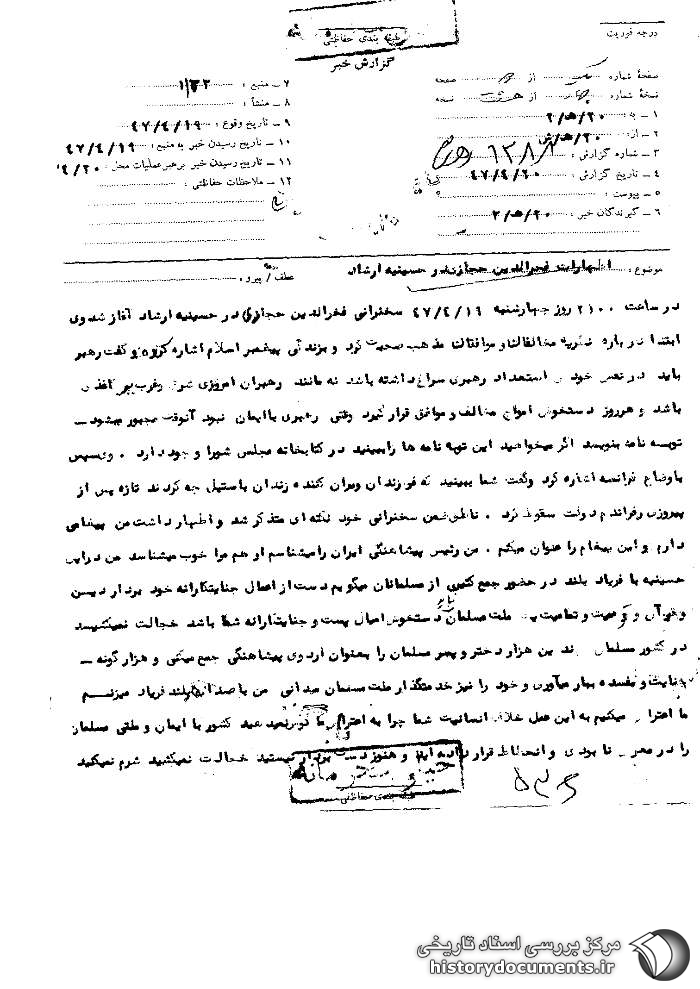 درجه فوریت
طبقه بندی حفاظتی
گزارش خبر
صفحه شماره یک از صفحه
نسخه شماره چهار از هشت نسخه
۱ – به : ۲۰ ه ۲
۲ – از : ۲۰ ه
۳ – شماره گزارش :
۴ – تاریخ گزارش : ۴۷/۴/۲۰
۵ – پیوست :
۶ – گیرندگان خبر : ۲۰ ه ۲
۷ – منبع :
۸ – منشأ :
۹ – تاریخ وقوع : ۴۷/۴/۱۹
۱۰ – تاریخ رسیدن خبر به منبع : ۴۷/۴/۱۹
۱۱ – تاریخ رسیدن خبر برهبر عملیات محل : ۴/۲۰
۱۲ – ملاحظات حفاظتی :
موضوع : اظهارات فخرالدین حجازی در حسینیه ارشاد
عطف / پیرو :
در ساعت ۲۱۰۰ روز چهارشنبه ۴۷/۴/۱۹ سخنرانی فخرالدین حجازی در حسینیه ارشاد آغاز شد وی
ابتدا در باره نظریه مخالفان و موافقان مذهب صحبت کرد و بزندگی پیغمبر اسلام اشاره کرد و گفت رهبر
باید در نفس خود استعداد رهبری سراغ داشته باشد نه مانند رهبران امروزی شرق و غرب
باشد و هرروز دستخوش امواج مخالف و موافق قرار گیرد وقتی رهبری با ایمان نبود آنوقت مجبور میشود –
توبه نامه بنویسد اگر میخواهید این توبه نامه ها را ببینید در کتابخانه مجلس شورا وجود دارد . وی سپس
باوضاع فرانسه اشاره کرد و گفت شما ببینید که فرزندان ویران کننده زندان باستیل چه کردند تازه پس از
پیروزی رفراندم دولت سقوط کرد . ناطق ضمن سخنرانی خود نکته ای متذکر شد و اظهار داشت من پیغامی
دارم و این پیغام را عنوان میکنم . من رئیس پیشاهنگی ایران را میشناسم او هم مرا خوب میشناسد من در این
حسینیه با فریاد بلند در حضور جمع کثیری از مسلمانان میگویم دست از اعمال جنایتکارانه خود بردار دیسن
و قرآن و ملت مسلمان نباید دستخوش امیال پست و جنایتکارانه شما باشد خجالت نمیکشید
در کشور مسلمان چندین هزار دختر و پسر مسلمان را بعنوان اردوی پیشاهنگی جمع میکنی و هزار گونه –
جنایت و مفسده ببار میآوری و خود را نیز خدمتگذار ملت مسلمان میدانی من با صدای بلند فریاد میزنم
ما اعتراض میکنیم به این عمل خلاف انسانیت شما چرا به اعتراض ما توجه نمیکنید کشور با ایمان و ملتی مسلمان
را در معرض نابودی و انحطاط قرار داده اید و هنوز دست بردار نیستید خجالت نمیکشید شرم نمیکنید
طبقه بندی حفاظتی
مرکز بررسی اسناد تاریخی
historydocuments.ir